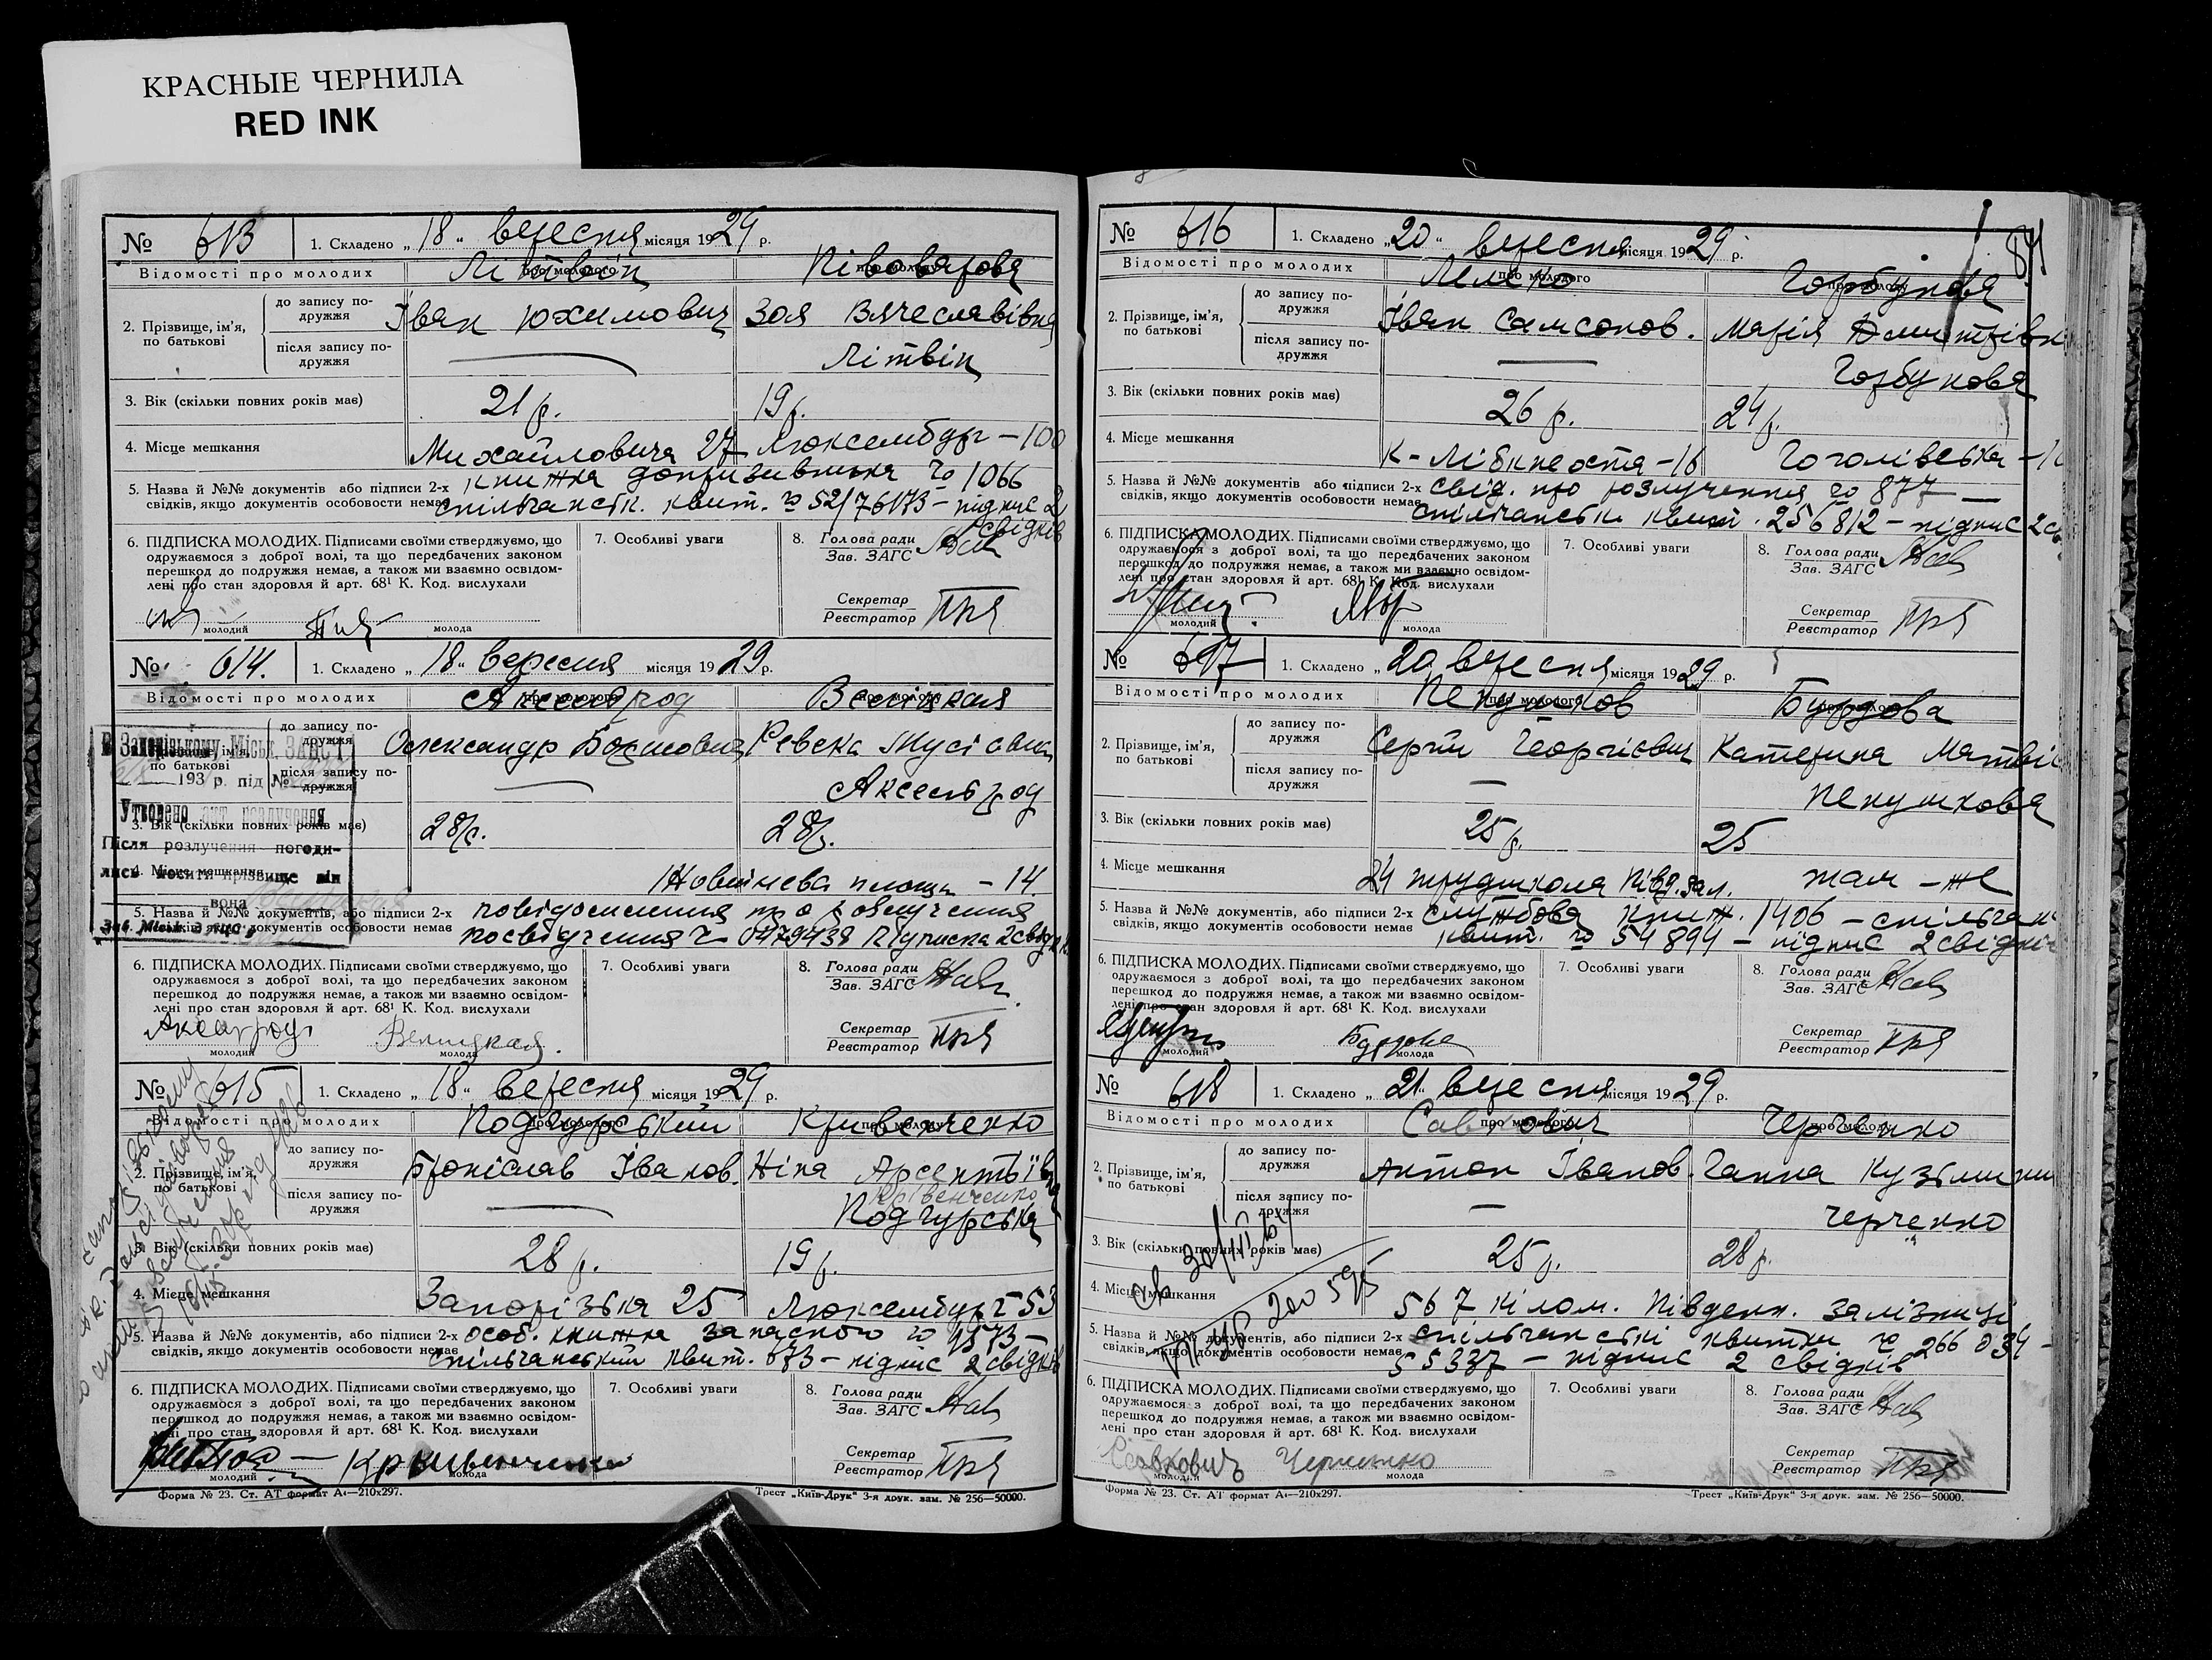 КРАСНЫЕ ЧЕРНИЛА
RED INK
№ 613 1. Складено „18“ вересня місяця 1929 р.
Відомості про молодих Літвін Півоварова
2. Прізвище, ім'я, по батькові
до запису подружжя Іван Юхимович Зоя Вячеславівна
після запису подружжя — Літвін
3. Вік (скільки повних років має) 21 р. 19 р.
4. Місце мешкання Михайловича 27 Люксембург – 100
5. Назва й №№ документів або підписи 2-х книжка допризивника № 1066
свідків, якщо документів особовости немає спільчанськ. квит. № 52/76173 – підпис 2
свідків
6. ПІДПИСКА МОЛОДИХ. Підписами своїми стверджуємо, що
одружаємося з доброї волі, та що передбачених законом
перешкод до подружжя немає, а також ми взаємно освідом-
лені про стан здоровля й арт. 68¹ К. Код. вислухали
молодий молода
7. Особливі уваги
8. Голова ради
Зав. ЗАГС
Секретар
Реєстратор
№ 614. 1. Складено „18“ вересня місяця 1929 р.
Відомості про молодих Аксельрод
до запису подружжя Олександр Ревека Мусіівна
після запису подружжя — Аксельрод
В Запорізькому Міськ. ЗАГС'і
193 р. під №
Утворено акт розлучення
Після розлучення погоди-
лись носити прізвище він
вона
Зав. Міськ. ЗАГС
3. Вік (скільки повних років має) 28 р. 28 р.
4. Місце мешкання площа – 14
5. Назва й №№ документів, або підписи 2-х повідомлення про розлучення
свідків, якщо документів особовости немає посвідчення № 0479439 Підписка 2 свідків
6. ПІДПИСКА МОЛОДИХ. Підписами своїми стверджуємо, що
одружаємося з доброї волі, та що передбачених законом
перешкод до подружжя немає, а також ми взаємно освідом-
лені про стан здоровля й арт. 68¹ К. Код. вислухали
молодий молода
7. Особливі уваги
8. Голова ради
Зав. ЗАГС
Секретар
Реєстратор
№ 615 1. Складено „18“ вересня місяця 1929 р.
Відомості про молодих Подгурський Кривенченко
2. Прізвище, ім'я, по батькові
до запису подружжя Броніслав Іванов. Ніна Арсентьївна
після запису подружжя — Подгурська
3. Вік (скільки повних років має) 28 р. 19 р.
4. Місце мешкання Запорізька 25 Люксембург 53
5. Назва й №№ документів, або підписи 2-х особ. книжка запасного № 4573 –
свідків, якщо документів особовости немає спільчанський квит. 673 – підпис 2 свідків
6. ПІДПИСКА МОЛОДИХ. Підписами своїми стверджуємо, що
одружаємося з доброї волі, та що передбачених законом
перешкод до подружжя немає, а також ми взаємно освідом-
лені про стан здоровля й арт. 68¹ К. Код. вислухали
молодий Кривенченко молода
7. Особливі уваги
8. Голова ради
Зав. ЗАГС
Секретар
Реєстратор
Форма № 23. Ст. АТ формат А₄—210х297. Трест „Київ-Друк“ 3-я друк. зам. № 256—50000.
№ 616 1. Складено „20“ вересня місяця 1929 р.
Відомості про молодих Горбунова
2. Прізвище, ім'я, по батькові
до запису подружжя Іван Самсонов. Марія Дмитрівн
після запису подружжя — Горбунова
3. Вік (скільки повних років має) 26 р. 24 р.
4. Місце мешкання К-Лібкнехта – 16 Гоголівська –
5. Назва й №№ документів або підписи 2-х свід. про розлучення № 877 —
свідків, якщо документів особовости немає спільчанськ. квит. 256812 – підпис 2 св
6. ПІДПИСКА МОЛОДИХ. Підписами своїми стверджуємо, що
одружаємося з доброї волі, та що передбачених законом
перешкод до подружжя немає, а також ми взаємно освідом-
лені про стан здоровля й арт. 68¹ К. Код. вислухали
молодий молода
7. Особливі уваги
8. Голова ради
Зав. ЗАГС
Секретар
Реєстратор
№ 617 1. Складено „20 вересня місяця 1929 р.
Відомості про молодих Пекушков Бурдова
2. Прізвище, ім'я, по батькові
до запису подружжя Сергій Георгієвич Катерина Матвіє
після запису подружжя — Пекушкова
3. Вік (скільки повних років має) 25 р. 25
4. Місце мешкання 24 трудшкола Півд. зал. там – же
5. Назва й №№ документів, або підписи 2-х службова книж. 1406 – спільчан
свідків, якщо документів особовости немає квит. № 54894 – підпис 2 свідків
6. ПІДПИСКА МОЛОДИХ. Підписами своїми стверджуємо, що
одружаємося з доброї волі, та що передбачених законом
перешкод до подружжя немає, а також ми взаємно освідом-
лені про стан здоровля й арт. 68¹ К. Код. вислухали
молодий Бурдова молода
7. Особливі уваги
8. Голова ради
Зав. ЗАГС
Секретар
Реєстратор
№ 618 1. Складено „21“ вересня місяця 1929 р.
Відомості про молодих Савкович Черченко
2. Прізвище, ім'я, по батькові
до запису подружжя Антон Іванов. Ганна
після запису подружжя — Черченко
3. Вік (скільки повних років має) 25 р. 28 р.
4. Місце мешкання 567 кілом. Південн. залізниці
5. Назва й №№ документів, або підписи 2-х спільчанські квитки № 266034 –
свідків, якщо документів особовости немає 55337 – підпис 2 свідків
6. ПІДПИСКА МОЛОДИХ. Підписами своїми стверджуємо, що
одружаємося з доброї волі, та що передбачених законом
перешкод до подружжя немає, а також ми взаємно освідом-
лені про стан здоровля й арт. 68¹ К. Код. вислухали
Савковичъ молодий молода
7. Особливі уваги
8. Голова ради
Зав. ЗАГС
Секретар
Реєстратор
Форма № 23. Ст. АТ формат А₄—210х297. Трест „Київ-Друк“ 3-я друк. зам. № 256—50000.